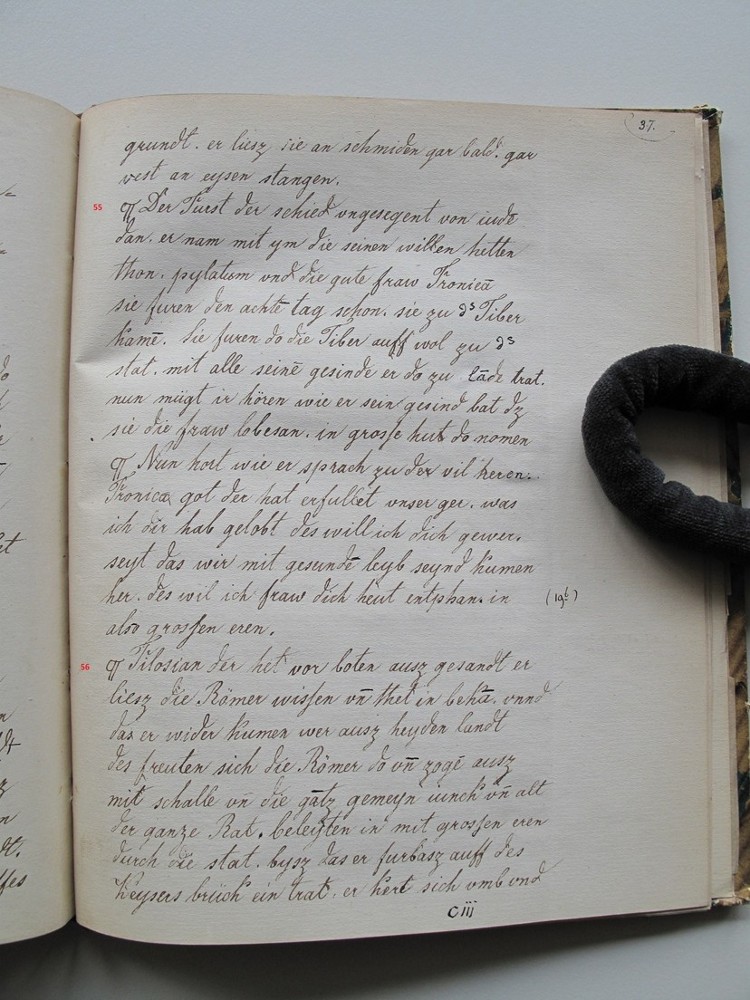 37.
grundt. er liesz sie an schmiden gar bald. gar
vest an eysen stangen.
55
¶ Der Furst der schied vngesegent von iude
dan. er nam mit ym die seinen willen hetten
thon. pylatum vnd die gute fraw Fronicā
sie furen den achtē tag schon. sie zu ds Tiber
kamē. Sie furen do die Tiber auff wol zu ds
stat. mit alle seinē gesinde er do zu lāde trat.
nun mügt ir hören wie er sein gesind bat dz
sie die fraw lobesan. in grosse hut do nomen
¶ Nun hort wie er sprach zu der vil heren.
Fronica got der hat erfullet vnser ger. was
ich dir hab gelobt des will ich dich gewer.
seyt das wir mit gesundē leyb seynd kumen
her. des wil ich fraw dich heut entphan. in
(19 6/2)
also grossen eren.
56
¶ Tilosian der het vor boten ausz gesandt er
liesz die Römer wissen vn̄ thet in bekā. vnnd
das er wider kumen wer ausz heyden landt
des freuten sich die Römer do vn̄ zogē ausz
mit schalle vn̄ die gātz gemeyn iunck vn̄ alt
der ganze Rat. beleyten in mit grossen eren
durch die stat. bysz das er furbasz auff des
Keysers brück ein trat. er kert sich vmb vnd
Ciij